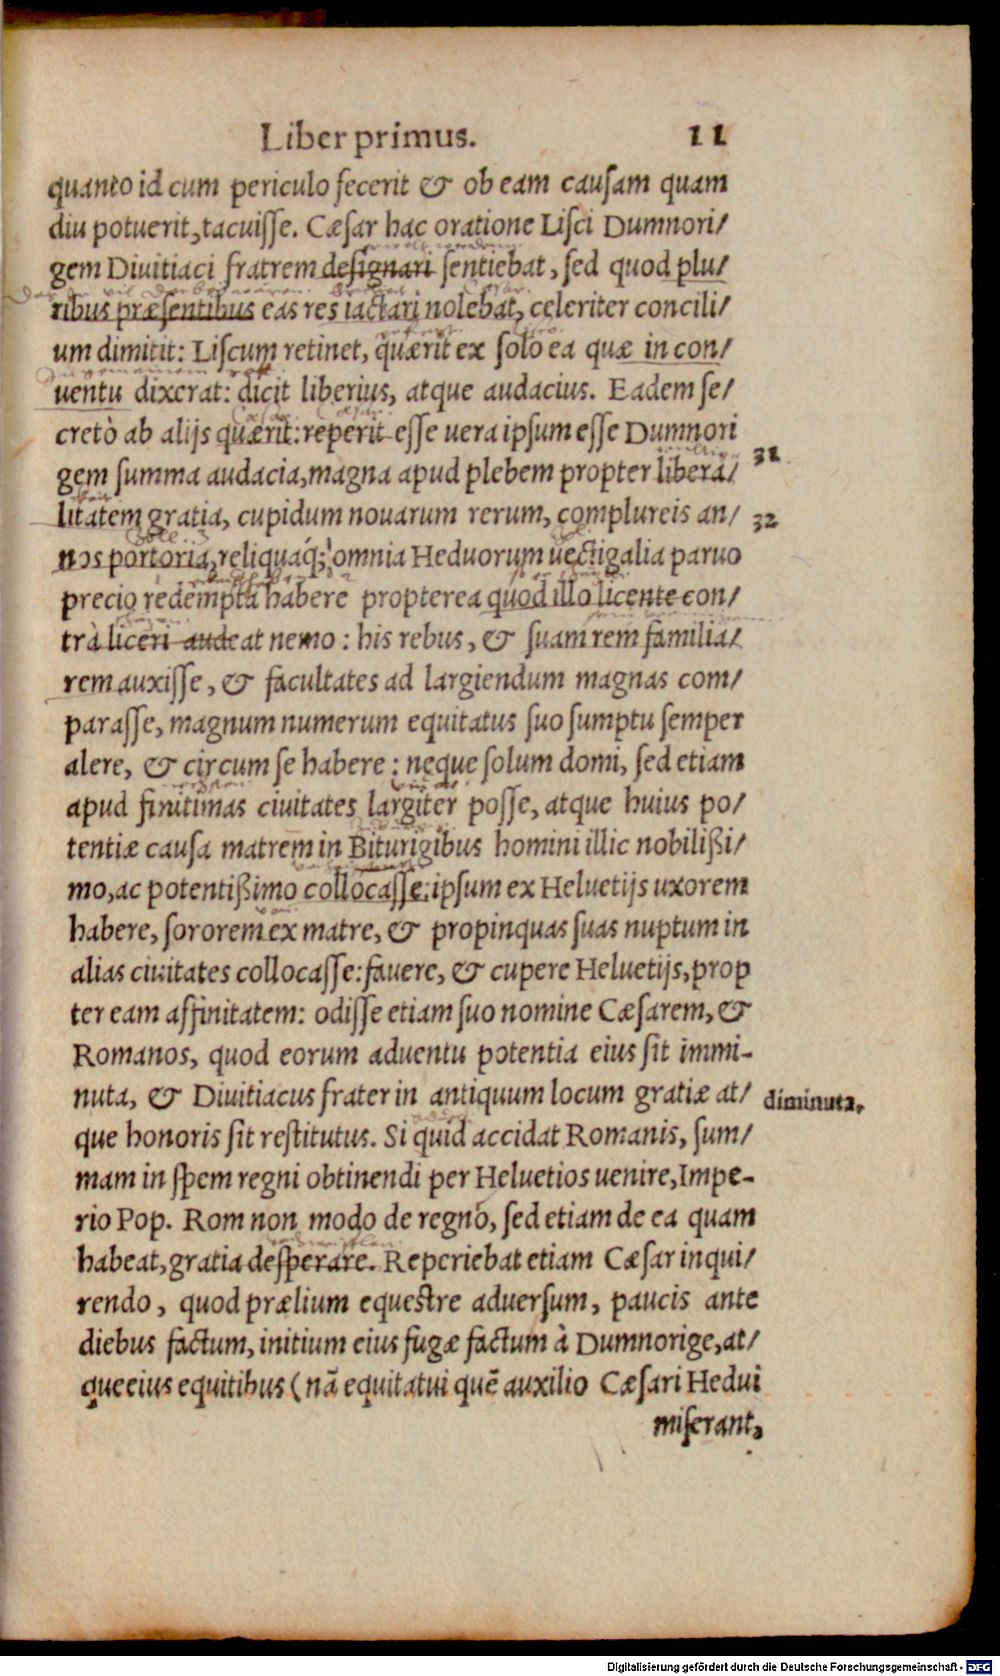 Liber primus. 11
quanto id cum periculo fecerit & ob eam causam quam
diu potuerit, tacuisse. Cæsar hac oratione Lisci Dumnori/
gem Diuitiaci fratrem designari sentiebat, sed quod plu/
ribus præsentibus eas res iactari nolebat, celeriter concili/
um dimitit: Liscum retinet, quærit ex solo ea quæ in con/
uentu dixerat: dicit liberius, atque audacius. Eadem se/
cretò ab alijs quærit: reperit esse uera ipsum esse Dumnori
gem summa audacia, magna apud plebem propter libera/
31
litatem gratia, cupidum nouarum rerum, complureis an/
32
nos portoria, reliquaq́; omnia Heduorum uectigalia paruo
precio redempta habere propterea quod illo licente con/
trà liceri audeat nemo: his rebus, & suam rem familia/
rem auxisse, & facultates ad largiendum magnas com/
parasse, magnum numerum equitatus suo sumptu semper
alere, & circum se habere: neque solum domi, sed etiam
apud finitimas ciuitates largiter posse, atque huius po/
tentiæ causa matrem in Biturigibus homini illic nobilißi/
mo, ac potentißimo collocasse: ipsum ex Heluetijs uxorem
habere, sororem ex matre, & propinquas suas nuptum in
alias ciuitates collocasse: fauere, & cupere Heluetijs, prop
ter eam affinitatem: odisse etiam suo nomine Cæsarem, &
Romanos, quod eorum aduentu potentia eius sit immi-
nuta, & Diuitiacus frater in antiquum locum gratiæ at/
diminuta,
que honoris sit restitutus. Si quid accidat Romanis, sum/
mam in spem regni obtinendi per Heluetios uenire, Impe-
rio Pop. Rom non modo de regno, sed etiam de ea quam
habeat, gratia desperare. Reperiebat etiam Cæsar inqui/
rendo, quod prælium equestre aduersum, paucis ante
diebus factum, initium eius fugæ factum à Dumnorige, at/
que eius equitibus (nā equitatui quē auxilio Cæsari Hedui
miserant,
Digitalisierung gefördert durch die Deutsche Forschungsgemeinschaft - DFG